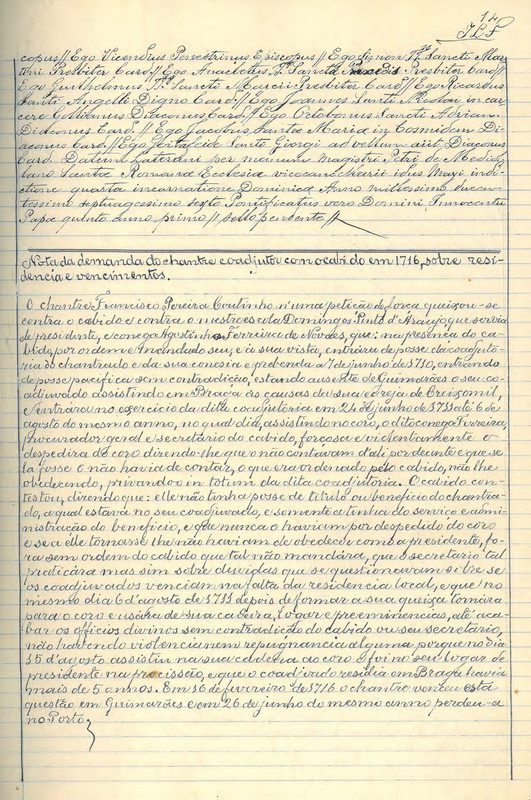 14
J.L.F.
copus // Ego Vicendius Penestrinus Episcopus // Ego Simon Tt. Sancti Mar-
tini Presbiter Card // Ego Anacletus Tt. Sancta Praxedis Presbiter Card //
Ego Guitholmus Tt. Sancti Marcii Presbiter Card // Ego Ricardus
Santti Angelli Digno Card. // Ego Joannes Santi Nicolau in car-
cere Diaconus Card. // Ego Octobonus Sancti Adriani
Diaconus Card. // Ego Jacobus Santae Maria in Cosmidem Di-
aconus Card. // Ego Santi Giorgi ad vellum Diaconus
Card. Datum Laterani per manum magistri Petri de Mediol-
lano Santae Romanae Ecclesiae vicecancelarii idus Mayi indi-
ctione quarta incarnatione Dominica Anno millessimo ducen-
tessimo septuagessimo sexto Pontificatus vero Domini Innocentii
Papae quinto anno primo // sello pendente //
Nota da demanda do chantre coadjutor com o cabido em 1716, sobre resi-
dencia e vencimentos.
O chantre Francisco Pereira Coutinho n'uma petição de força queixou-se
contra o cabido e contra o mestre escola Domingos Pinto d'Araujo, que servia
de presidente, e conego Agostinho Ferreira de Novaes, que: na presença do ca-
bido, por ordem e mandado seu, e á sua vista, entrára de posse da coadjuto-
ria do chantrado e da sua conesia e prebenda a 7 de junho de 1710, entrando
de posse pacifica sem contradição, estando ausente de Guimarães o seu co-
adjuvado assistindo em Braga ás causas da sua egreja de Creixomil,
e entrára no exercicio da dita coadjutoria em 24 de junho de 1711 até 6 de
agosto do mesmo anno, no qual dia, assistindo no coro, o dito conego Ferreira,
procurador geral e secretário do cabido, forçosa e violentamente o
despedira do coro dizendo-lhe que o não contavam d'ali por deante e que se
la fosse o não havia de contar, o que era ordenado pelo cabido, não lhe
obedecendo, privando-o in totum da dita coadjutoria. O cabido con-
testou, dizendo que: elle não tinha posse de titulo ou beneficio do chantra-
do, a qual estava no seu coadjuvado, e somente a tinha do serviço e admi-
nistração do beneficio, e que nunca o haviam por despedido do coro
e se a elle tornasse lhe não haviam de obedecer como a presidente, fo-
ra sem ordem do cabido que tal não mandára, que o secretario tal
praticára mas sim sobre duvidas que se questionavam sobre se
os coadjuvados venciam na falta da residencia local, e que no
mesmo dia 6 d'agosto de 1711 depois de formar a sua queixa tornára
para o coro e usára de sua cadeira, logar e preeminencias, até aca-
bar os officios divinos sem contradição do cabido ou seu secretário,
não havendo violencia nem repugnancia alguma porque no dia
15 d'agosto assistiu na sua cadeira ao coro e foi no seu logar de
presidente na procissão, e que o coadjuvado residia em Braga havia
mais de 5 annos. Em 16 de fevereiro de 1716 o chantre venceu esta
questão em Guimarães e em 26 de junho do mesmo anno perdeu-a
no Porto.